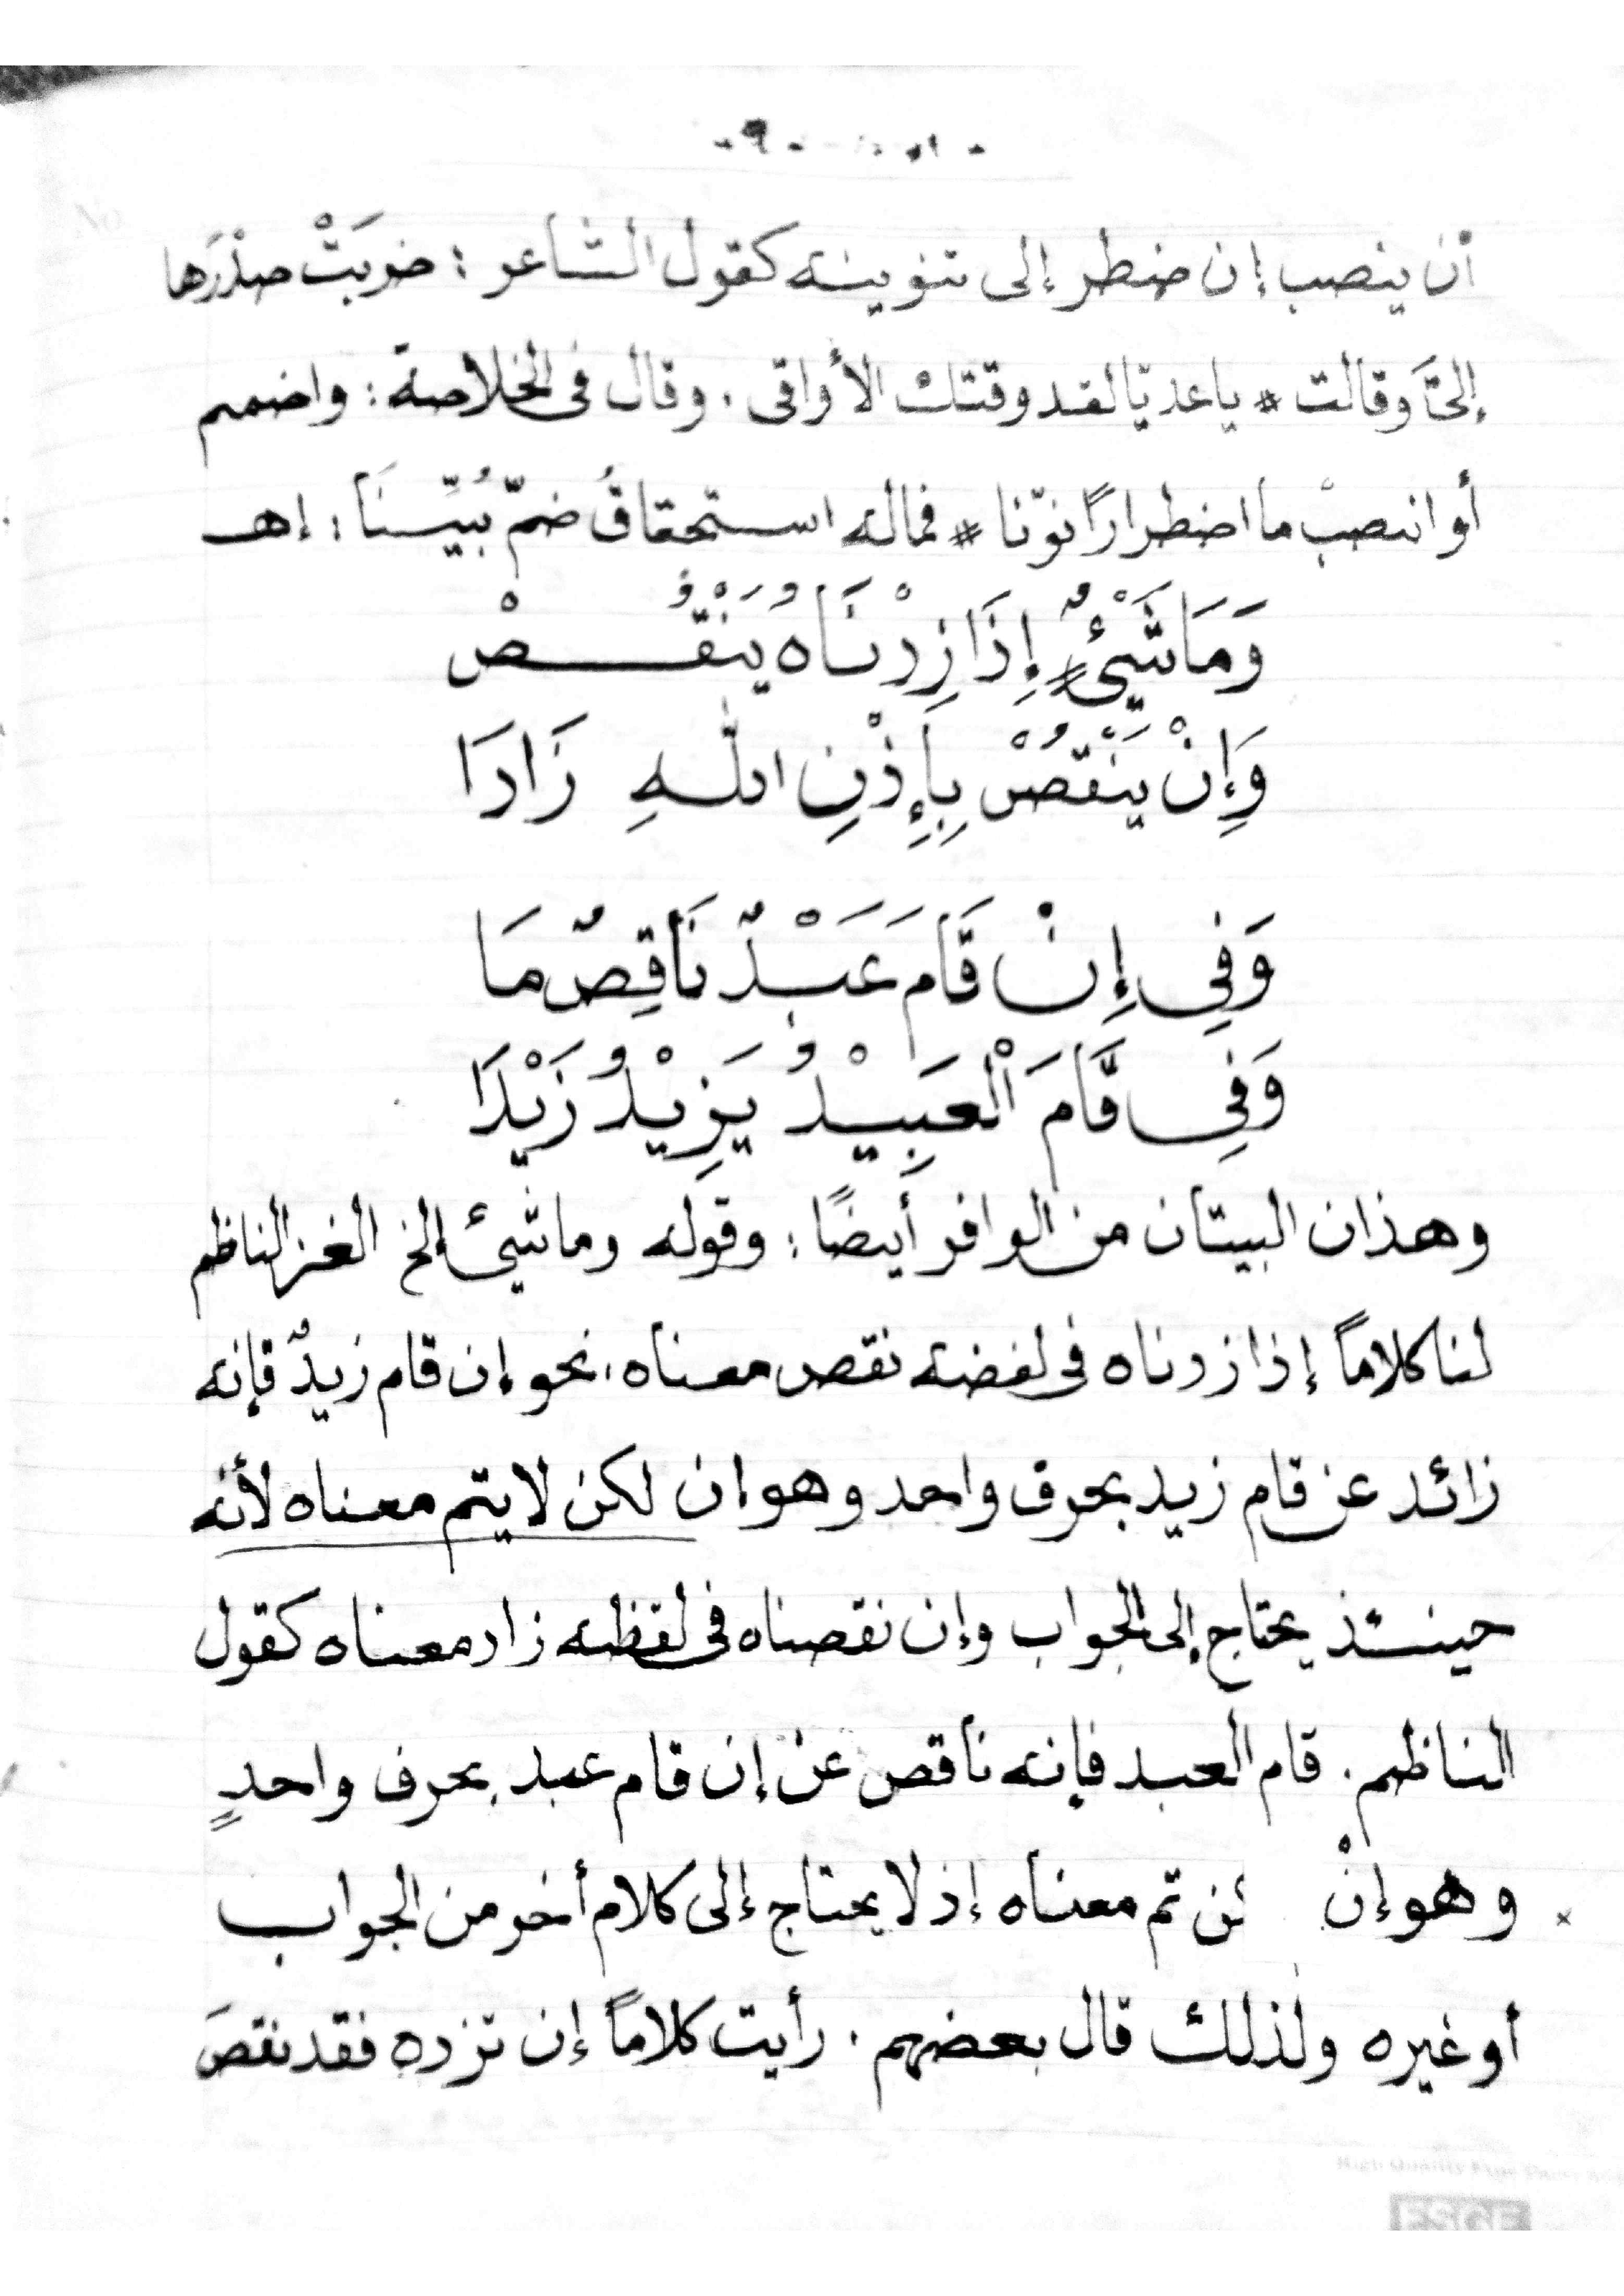 -٩-
أن ينصب إن ضطر إلى تنوينه كقول الشاعر : ضربَتْ صدْرَها
إليَّ وقالت # يا عديّا لقد وقتك الأواقى . وقال فى الخلاصة : واضمم
أو انصبْ ما اضطرارًا نوّنا # فماله استحقاقُ ضمّ بُيِّنَا : إهـ
وَمَا شَيْئٌ إِذَا زِدْنَاهُ يَنْقُصْ
وَإِنْ يَنْقُصْ بِإِذْنِ اللّٰهِ زَادَا
وَفِي إِنْ قَامَ عَبْدٌ نَاقِصٌ مَا
وَفِي قَامَ الْعَبِيْدُ يَزِيْدُ زَيْدَا
وهذان البيتان من الوافر أيضًا : وقوله وما شيئ إلخ الغز الناظم
لنا كلاماً إذا زدناه فى لفضه نقص معناه ، نحو إن قام زيدٌ فإنه
زائد عن قام زيد بحرف واحد وهو ان لكن لا يتم معناه لأنه
حينئذ يحتاج إلى الجواب وإن نقصناه فى لفظه زاد معناه كقول
الناظم . قام العبد فإنه ناقص عن إن قام عبد بحرف واحدٍ
وهو إنْ تم معناه إذ لا يحتاج إلى كلام أخر من الجواب
أو غيره ولذلك قال بعضهم . رأيت كلاماً إن تزده فقد نقصَ
ESGE